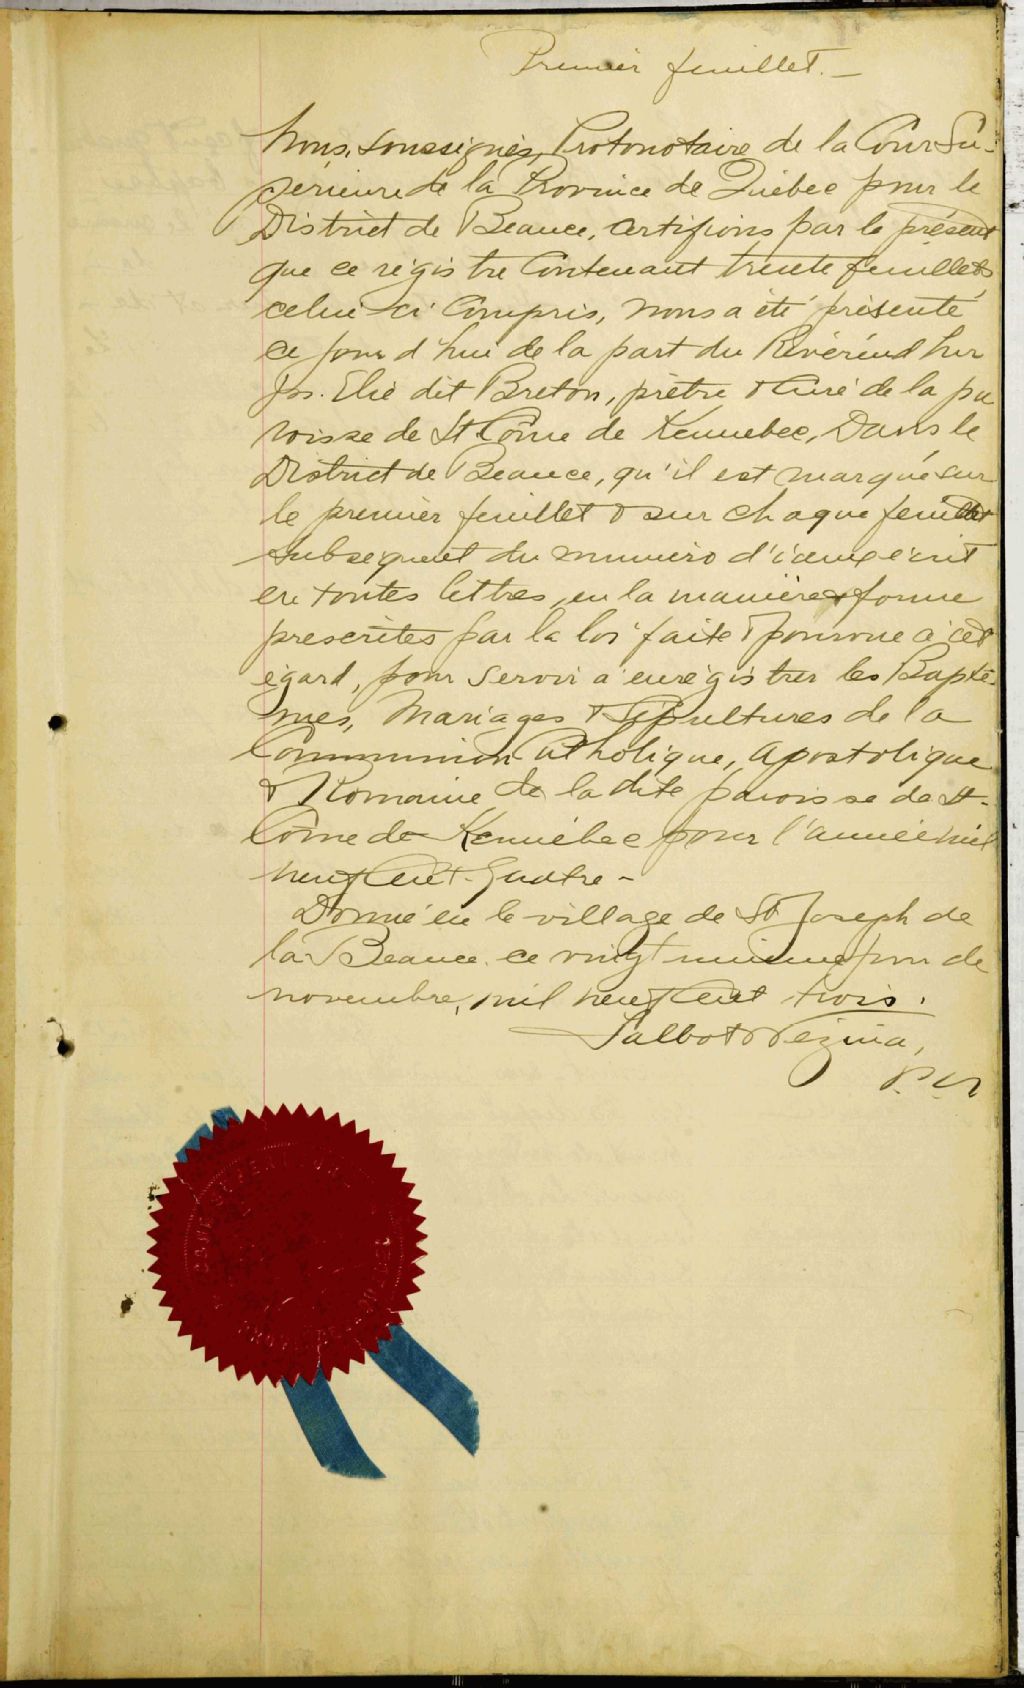 Premier feuillet. —
Nous, soussignés, Protonotaire de la Cour Su-
périeure de la Province de Québec pour le
District de Beauce, certifions par le présent
que ce régistre contenant trente feuillets,
celui-ci compris, nous a été présenté
ce jour d'hui de la part du Révérend
Jos. Elie dit Breton, prêtre & curé de la pa
roisse de St Côme de Kennebec, Dans le
District de Beauce, qu'il est marqué sur
le premier feuillet & sur chaque feuillet
subséquent du numéro d'iceux écrit
en toutes lettres, en la manière & forme
prescrites par la loi faite & pourvue à cet
égard, pour servir à enrégistrer les Baptê-
mes, Mariages & Sépultures de la
Communion Catholique, Apostolique
& Romaine, de la dite paroisse de St-
Côme de Kennébec pour l'année mil
neuf cent-quatre —
Donné en le village de St Joseph de
la Beauce ce vingt unième jour de
novembre, mil neuf cent trois.
Talbot & Vézina,
P. C. S.
COUR SUPERIEURE